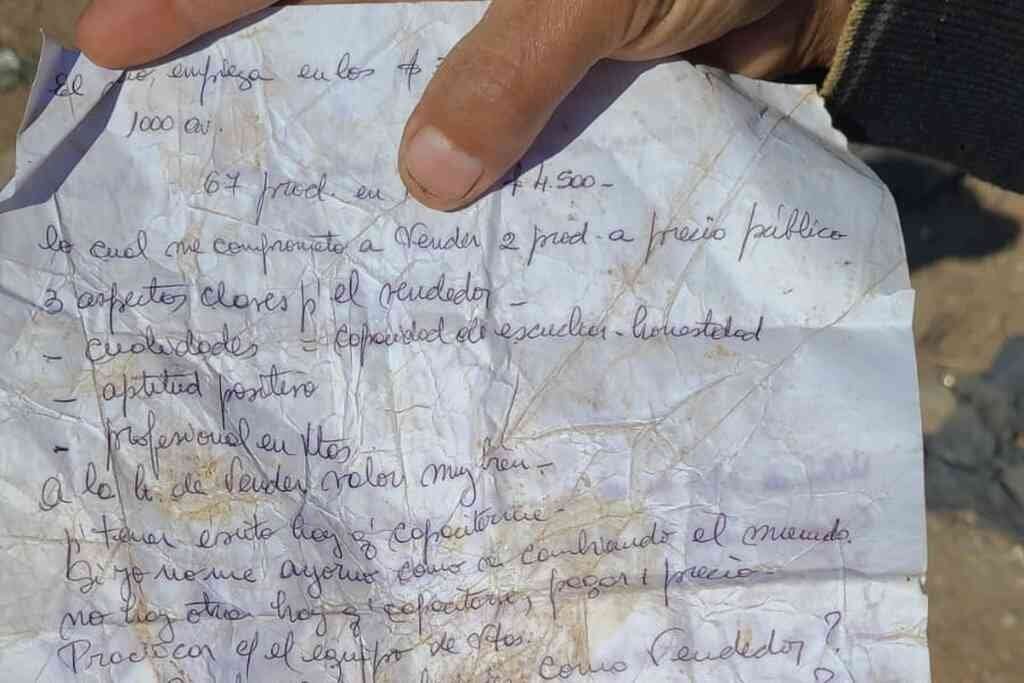 El empieza en los $
1000 av.
67 prod. en $ 4.500-
lo cual me comprometo a Vender 2 prod. a precio público
3 aspectos claves p' el vendedor -
- cualidades = capacidad de escuchar - honestidad
- aptitud positivo
- profesional en Vtas
A la h. de Vender valor muy bien -
p' tener éxito hay q' capacitarme -
Si yo no me ayorno como va cambiando el mundo.
no hay otra hay q' capacitarse, pagar 1 precio -
Practicar el equipo de Vtas.
como Vendedor ?